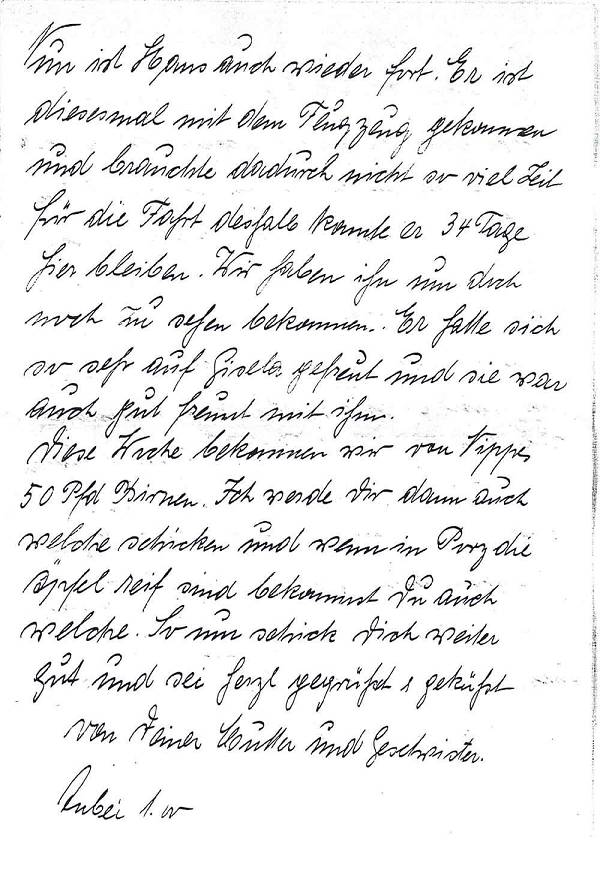 Nun ist Hans auch wieder fort. Er ist
diesesmal mit dem Flugzeug gekommen
und brauchte dadurch nicht so viel Zeit
für die Fahrt deshalb konnte er 34 Tage
hier bleiben. Wir haben ihn nun doch
noch zu sehen bekommen. Er hatte sich
so sehr auf Gisela gefreut und sie war
auch gut freund mit ihm.
Diese Woche bekommen wir von Nippes
50 Pfd Birnen. Ich werde Dir dann auch
welche schicken und wenn in Porz die
Äpfel reif sind bekommst Du auch
welche. So nun schick Dich weiter
gut und sei herzl gegrüßt & geküßt
von Deiner Mutter und Geschwister.
Anbei 1.